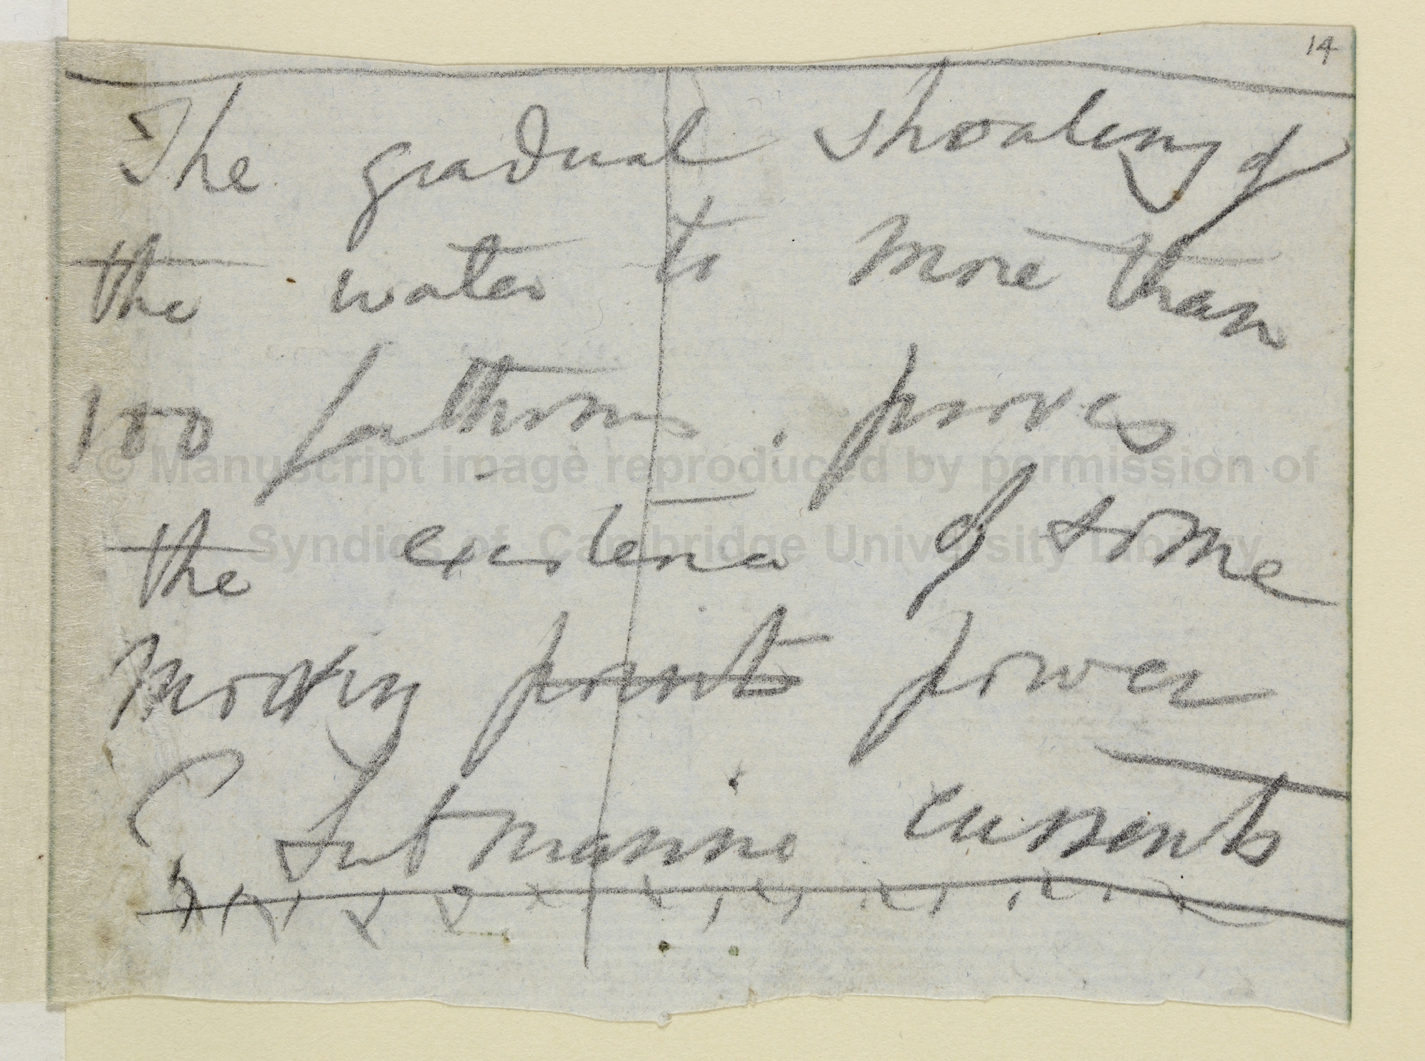 14
The gradual shoaling of
the water to more than
100 fathoms, proves
the existence of some
moving power
( Submarine currents
© Manuscript image reproduced by permission of
Syndics of Cambridge University Library